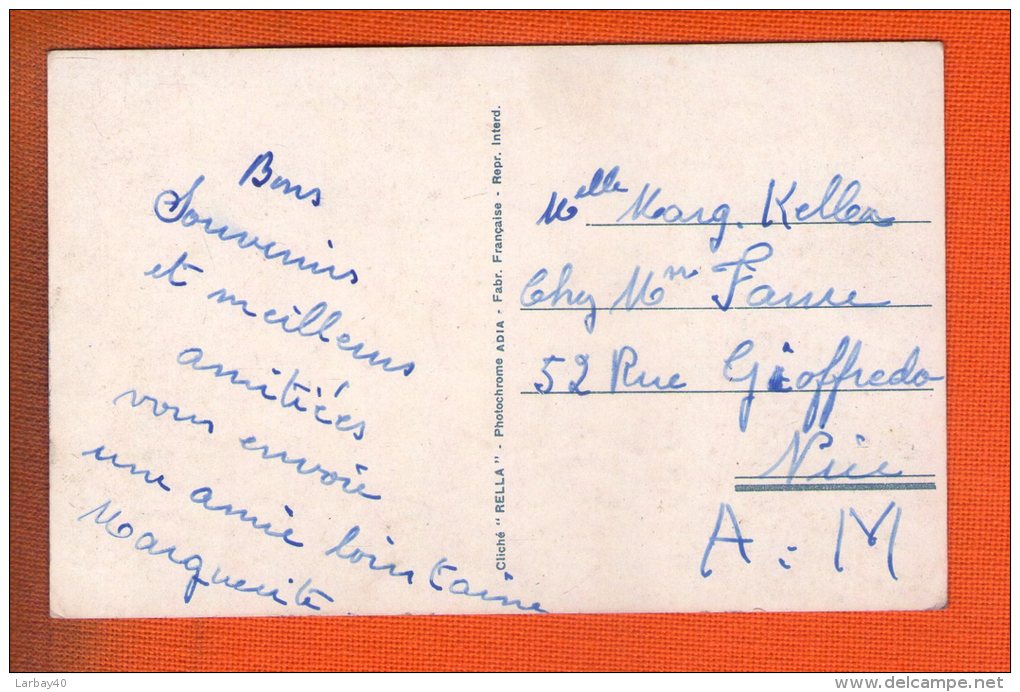 Bons
Souvenirs
et meilleurs
amitiées
vous envoie
une amie lointaine
Marguerite
Cliché "RELLA" - Photochrome ADIA - Fabr. Française - Repr. Interd.
Melle Marg. Keller
Chez Mn
52 Rue Gioffredo
Nice
A. M
Larbay40
delcampe.net